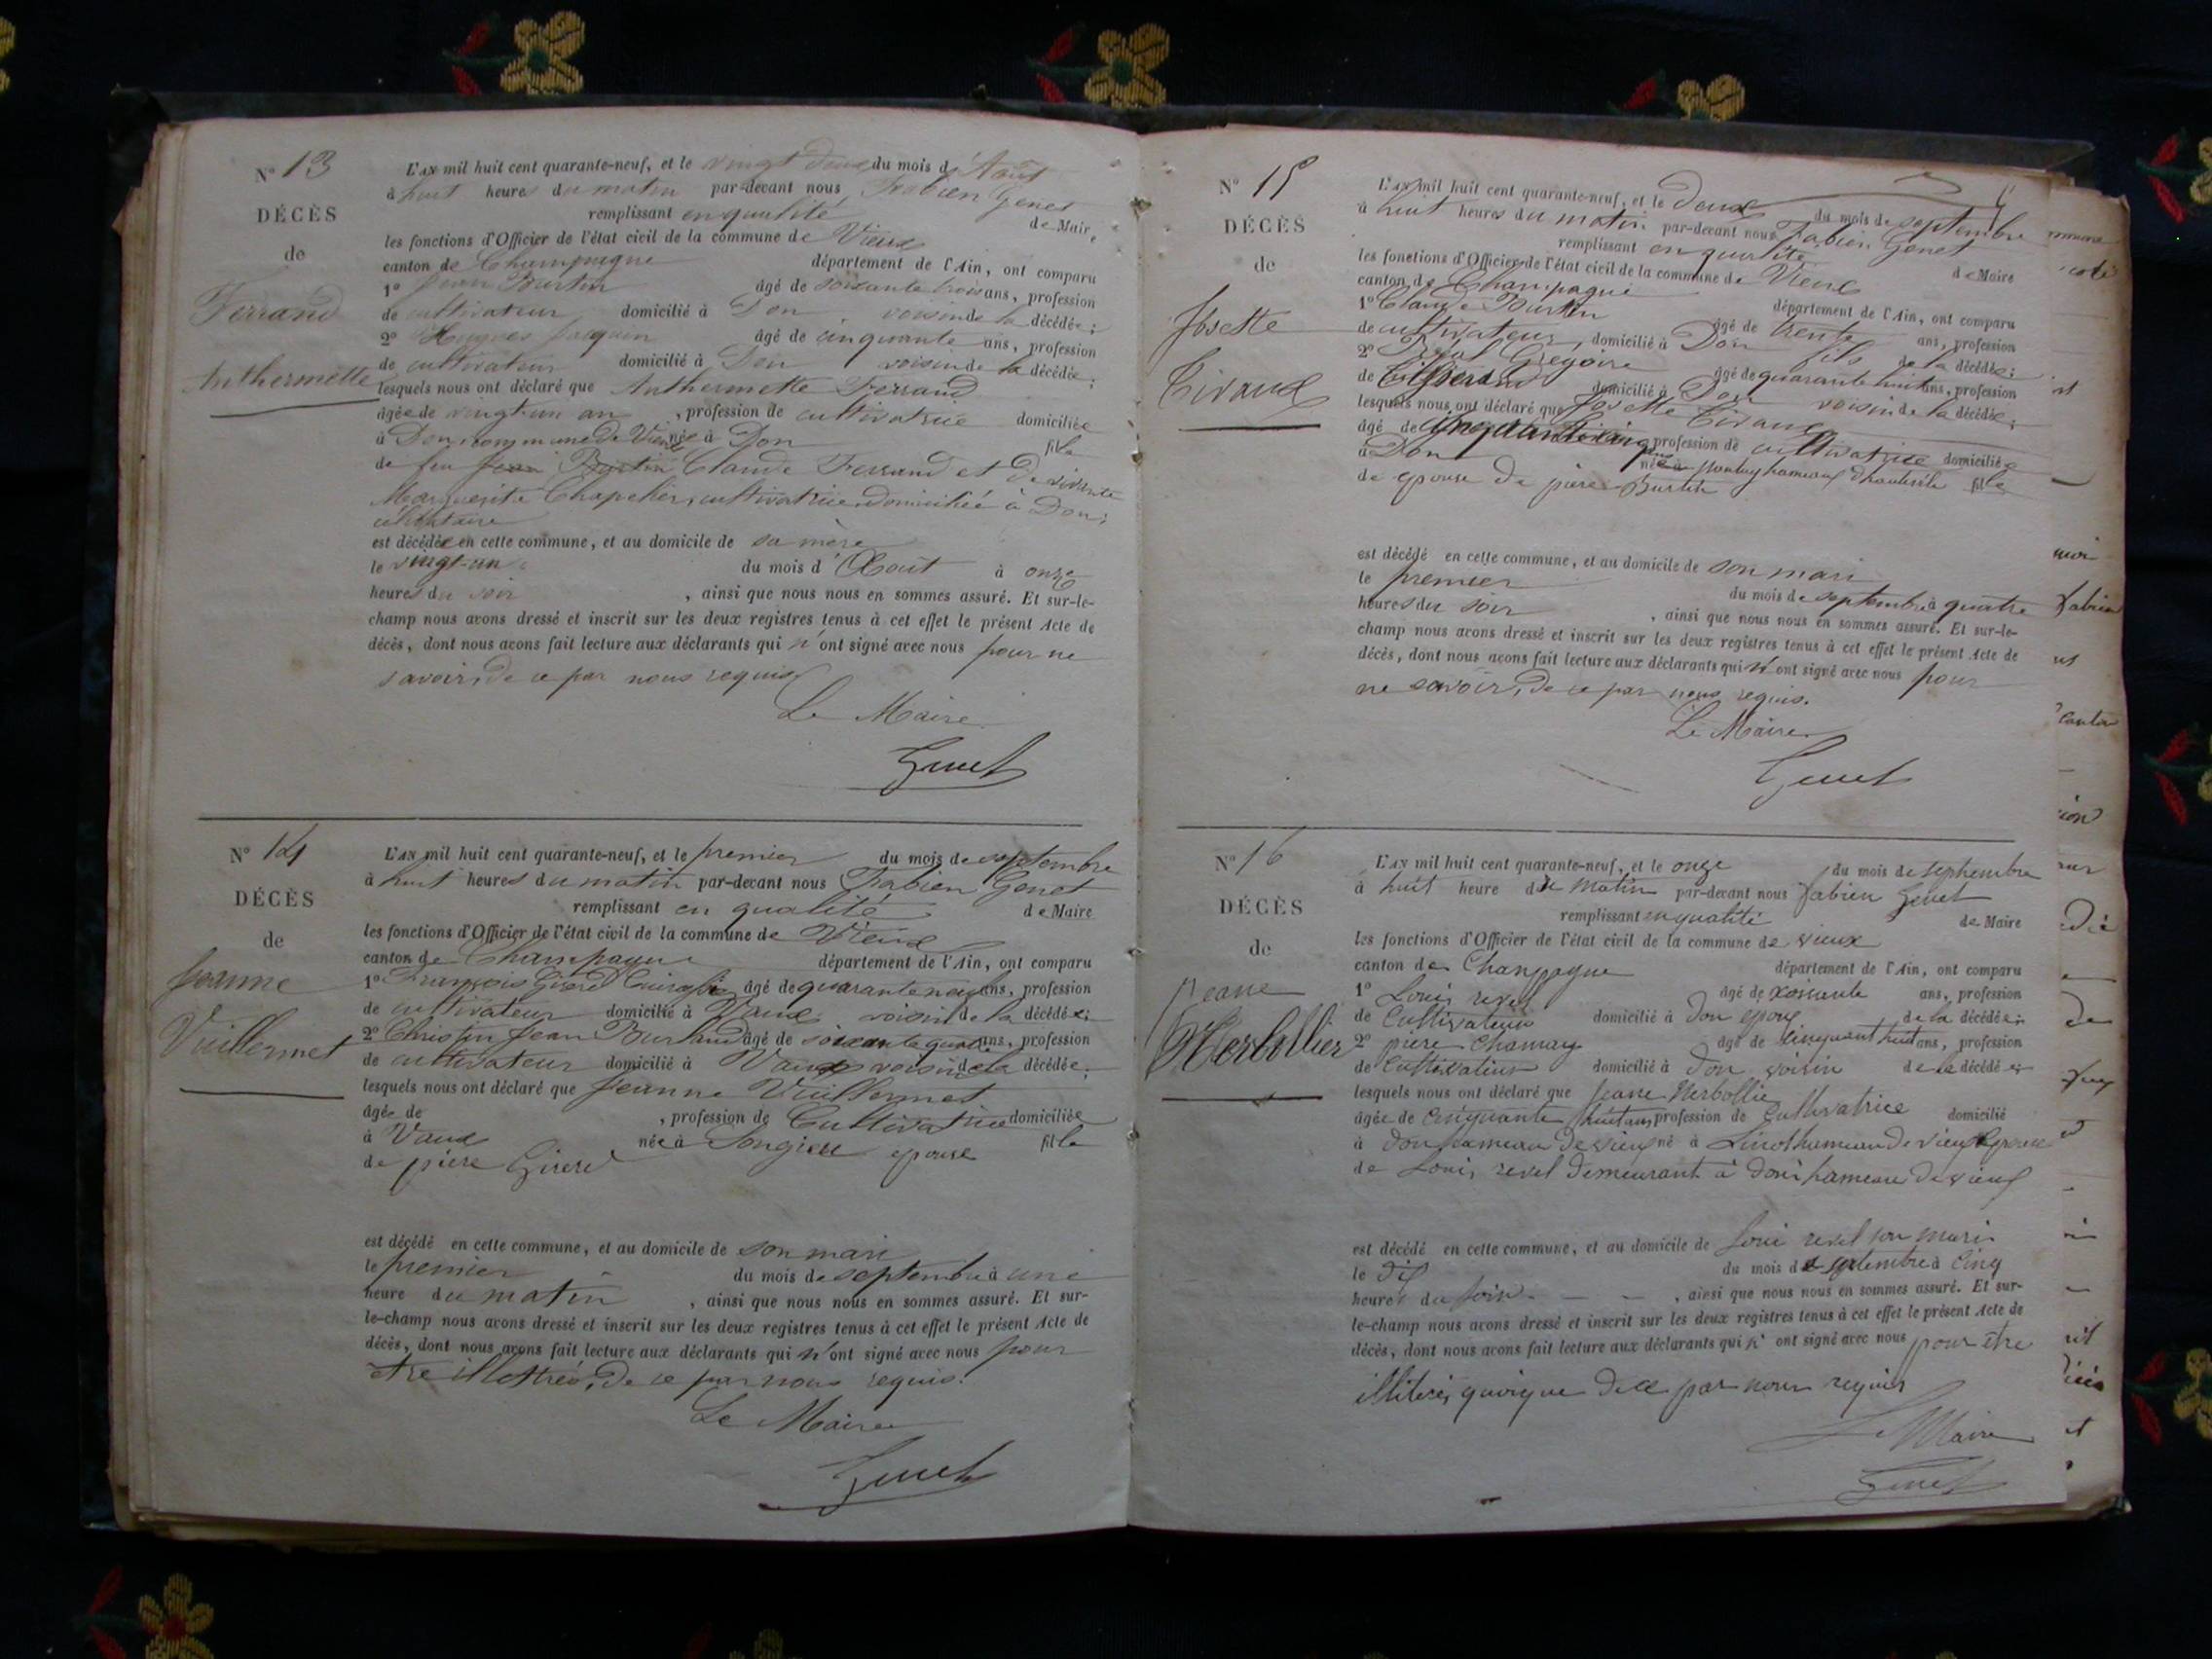 N° 13
DÉCÈS
de
Ferrand
Anthermette
L'AN mil huit cent quarante-neuf, et le vingt deux du mois d'Août
à huit heures du matin par-devant nous Fabien Genet
remplissant en qualité de Maire
les fonctions d'Officier de l'état civil de la commune de Vieux
canton de Champagne département de l'Ain, ont comparu
1° Jean Burtin âgé de soixante trois ans, profession
de cultivateur domicilié à Don voisin de la décédée;
2° Hugues Jacquin âgé de cinquante ans, profession
de cultivateur domicilié à Don voisin de la décédée;
lesquels nous ont déclaré que Anthermette Ferrand
âgée de vingt-un an, profession de cultivatrice domiciliée
à Don, commune de Vieux née à Don fille
de feu Jean Burtin Claude Ferrand et de vivante
Marguerite Chapelier, cultivatrice domiciliée à Don;
célibataire
est décédée en cette commune, et au domicile de sa mère
le vingt-un du mois d'Août à onze
heures du soir, ainsi que nous nous en sommes assuré. Et sur-le-
champ nous avons dressé et inscrit sur les deux registres tenus à cet effet le présent Acte de
décès, dont nous avons fait lecture aux déclarants qui n'ont signé avec nous pour ne
savoir, de ce par nous requis
Le Maire
Genet
N° 14
DÉCÈS
de
Jeanne
Vuillermet
L'AN mil huit cent quarante-neuf, et le premier du mois de septembre
à huit heures du matin par-devant nous Fabien Genet
remplissant en qualité de Maire
les fonctions d'Officier de l'état civil de la commune de Vieux
canton de Champagne département de l'Ain, ont comparu
1° François Girerd âgé de quarante neuf ans, profession
de cultivateur domicilié à Vaux voisin de la décédée;
2° Christin Jean âgé de soixante quatre ans, profession
de cultivateur domicilié à Vaux voisin de la décédée;
lesquels nous ont déclaré que Jeanne Vuillermet
âgée de , profession de Cultivatrice domiciliée
à Vaux née à Songieu epouse fille
de piere Girerd
est décédé en cette commune, et au domicile de son mari
le premier du mois de septembre à une
heure du matin, ainsi que nous nous en sommes assuré. Et sur-
le-champ nous avons dressé et inscrit sur les deux registres tenus à cet effet le présent Acte de
décès, dont nous avons fait lecture aux déclarants qui n'ont signé avec nous pour
etre illettrés, de ce par nous requis.
Le Maire
Genet
N° 15
DÉCÈS
de
Josette
Tivaux
L'AN mil huit cent quarante-neuf, et le deux du mois de septembre
à huit heures du matin par-devant nous Fabien Genet
remplissant en qualité de Maire
les fonctions d'Officier de l'état civil de la commune de Vieux
canton de Champagne département de l'Ain, ont comparu
1° Claude Burtin âgé de trente ans, profession
de cultivateur, domicilié à Don fils de la décédée;
2° Grégoire âgé de quarante huit ans, profession
de domicilié à Don voisin de la décédée;
lesquels nous ont déclaré que Josette Tivaux
âgé de cinquante cinq profession de cultivatrice domiciliée
à Don née à hameau d'hauteville fille
de epouse de piere Burtin
est décédé en cette commune, et au domicile de son mari
le premier du mois de septembre à quatre
heures du soir, ainsi que nous nous en sommes assuré. Et sur-le-
champ nous avons dressé et inscrit sur les deux registres tenus à cet effet le présent Acte de
décès, dont nous avons fait lecture aux déclarants qui n'ont signé avec nous pour
ne savoir, de ce par nous requis.
Le Maire
Genet
N° 16
DÉCÈS
de
jeane
Herbollier
L'AN mil huit cent quarante-neuf, et le onze du mois de sephembre
à huit heure de matin par-devant nous fabien Genet
remplissant en qualité de Maire
les fonctions d'Officier de l'état civil de la commune de vieux
canton de Champagne département de l'Ain, ont comparu
1° Louis revel âgé de soissante ans, profession
de Cultivateur domicilié à don epoux de la décédée;
2° piere Chamay âgé de cinquant huit ans, profession
de Cultivateur domicilié à don voisin de la décédée;
lesquels nous ont déclaré que jeane Herbollie
âgée de cinquante huit ans profession de Cultivatrice domicilié
à don hameau de vieux né à Linot hameau de vieux Epouse
de Louis revel demeurant à don hameau de vieux
est décédé en cette commune, et au domicile de Loui revel son mari
le dix du mois de septembre à cinq
heures du soir, ainsi que nous nous en sommes assuré. Et sur-
le-champ nous avons dressé et inscrit sur les deux registres tenus à cet effet le présent Acte de
décès, dont nous avons fait lecture aux déclarants qui n'ont signé avec nous pour être
illiterés, quoique de ce par nous requis
Le Maire
Genet